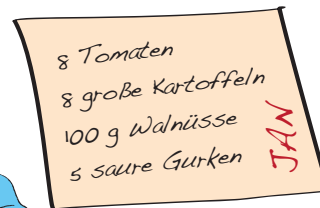 8 Tomaten
8 große Kartoffeln
100 g Walnüsse
5 saure Gurken
JAN